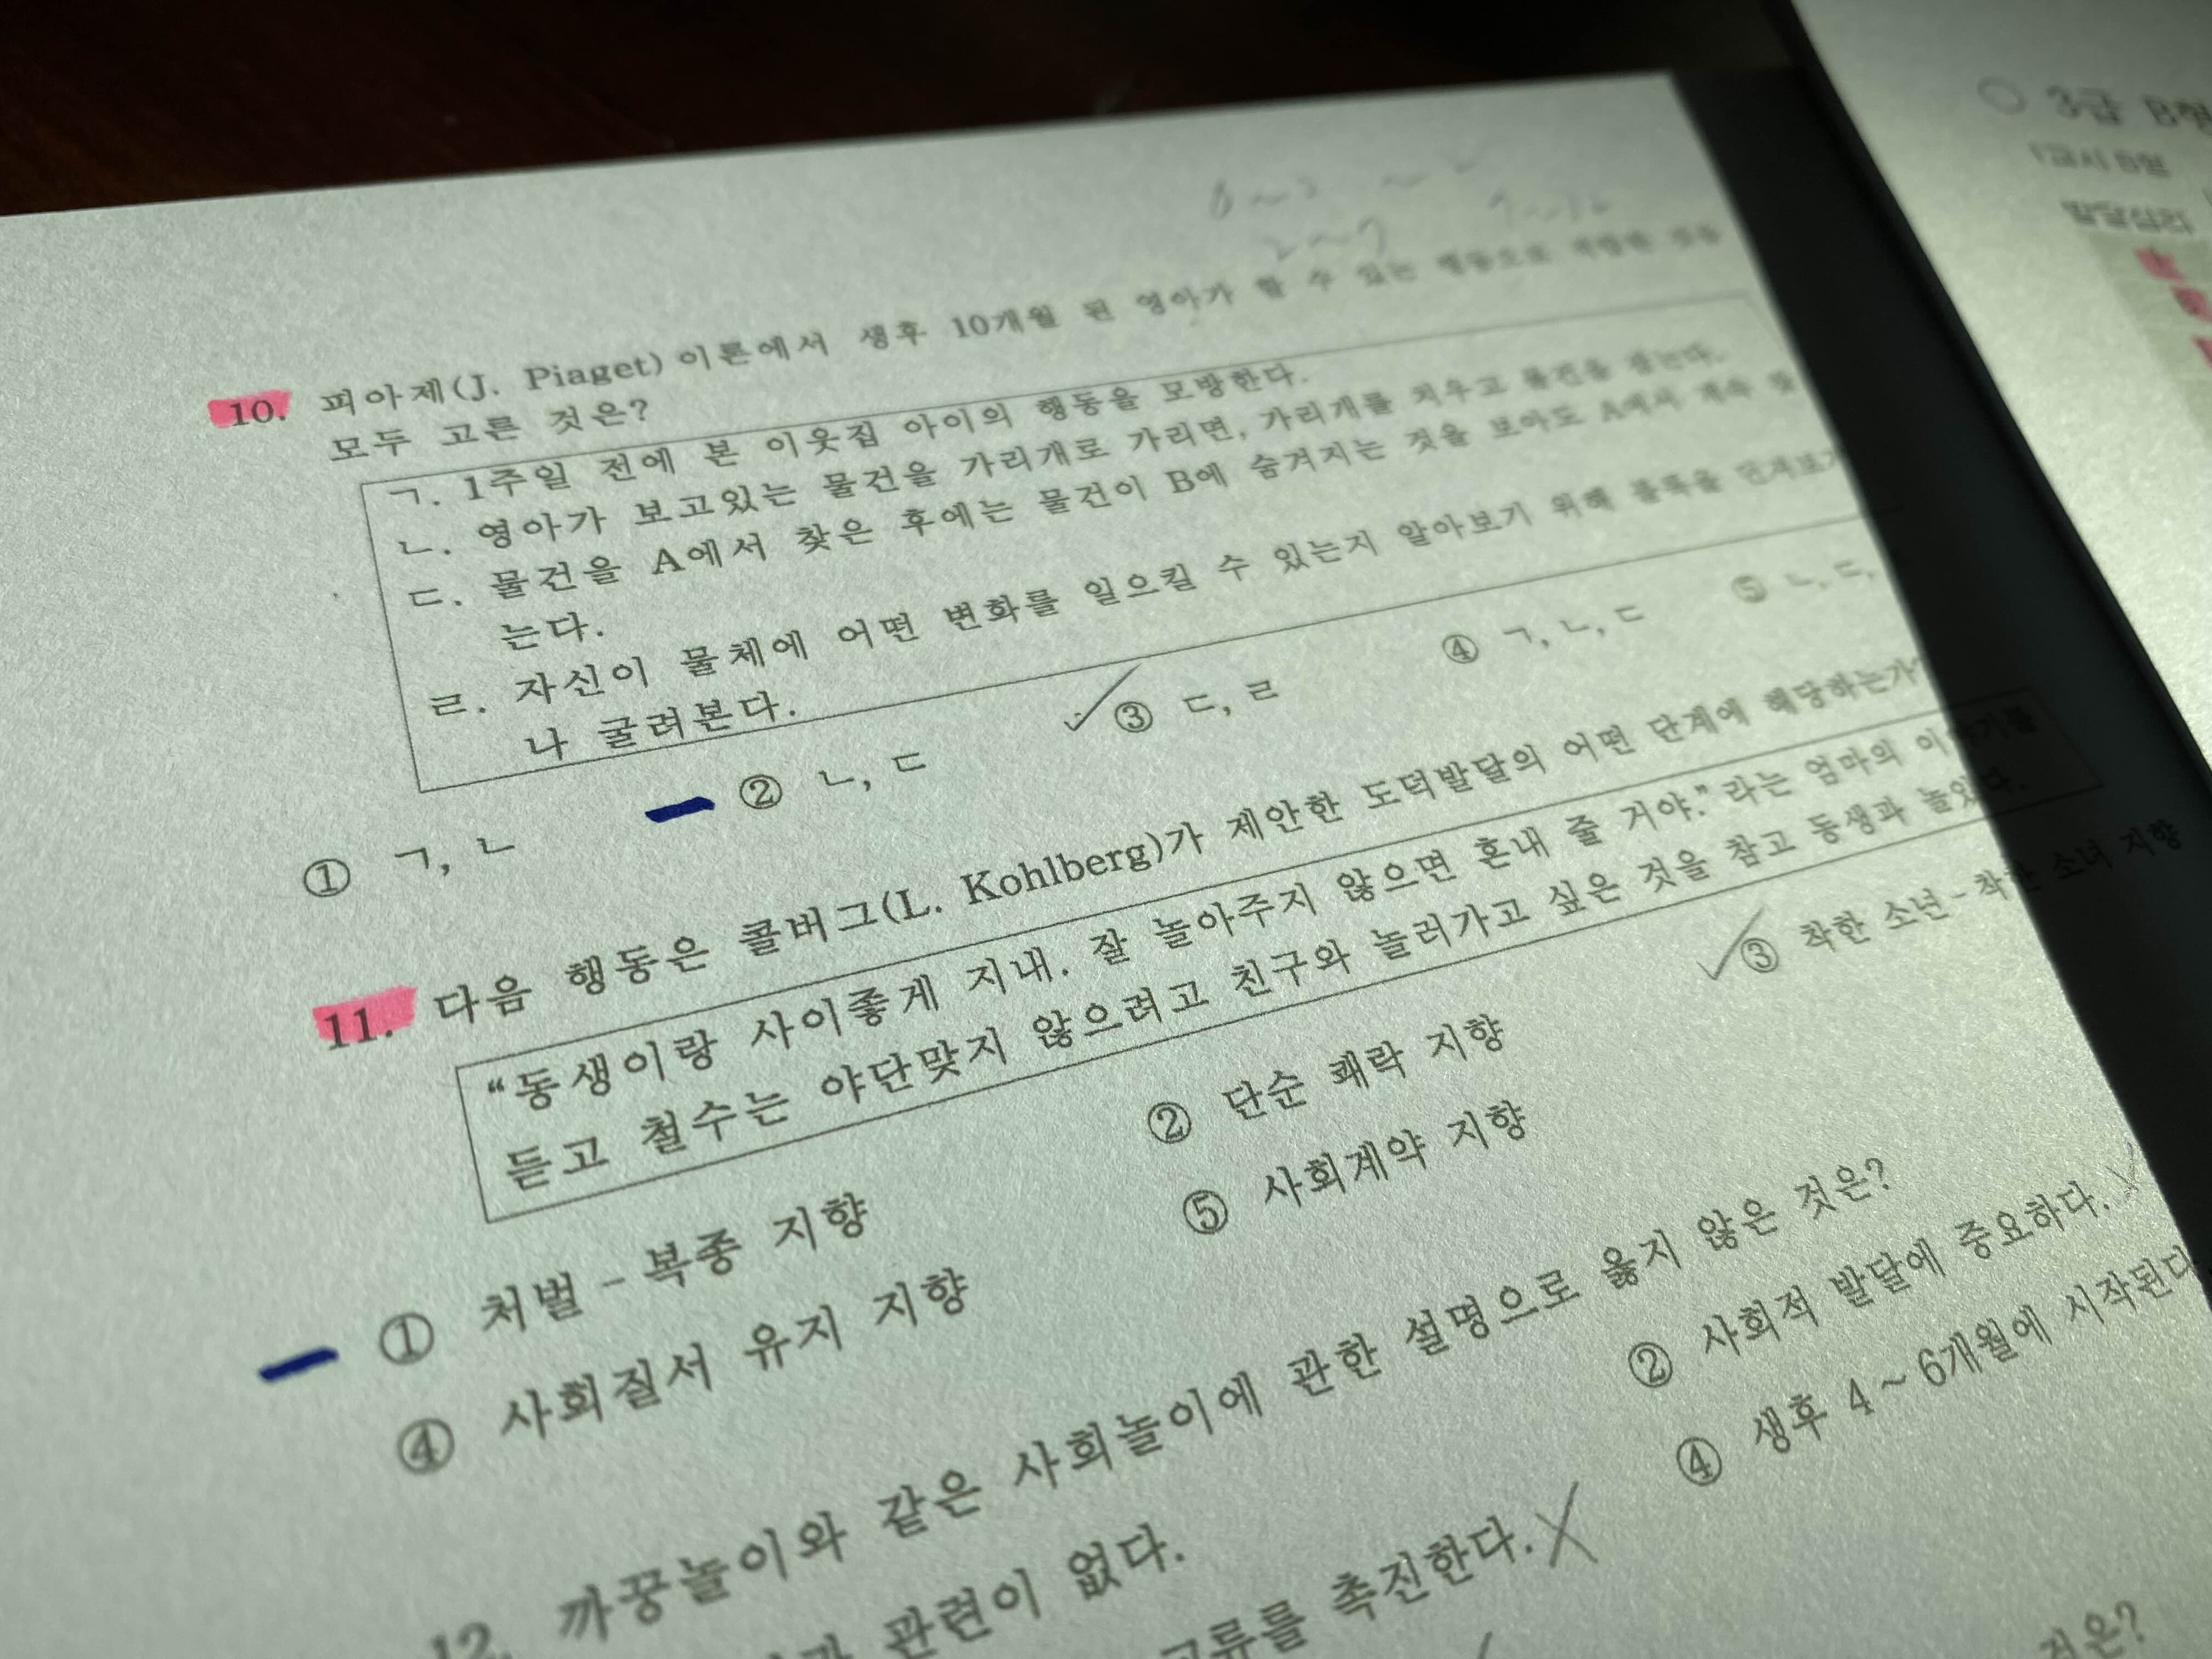 3급 B형
1교시 B형
발달심리
10. 피아제(J. Piaget) 이론에서 생후 10개월 된 영아가 할 수 있는 행동으로
모두 고른 것은?
ㄱ. 1주일 전에 본 이웃집 아이의 행동을 모방한다.
ㄴ. 영아가 보고있는 물건을 가리개로 가리면, 가리개를 치우고 물건을 잡는다.
ㄷ. 물건을 A에서 찾은 후에는 물건이 B에 숨겨지는 것을 보아도 A에서 계속 찾
는다.
ㄹ. 자신이 물체에 어떤 변화를 일으킬 수 있는지 알아보기 위해 블록을 던져보거
나 굴려본다.
① ㄱ, ㄴ ② ㄴ, ㄷ ③ ㄷ, ㄹ ④ ㄱ, ㄴ, ㄷ ⑤ ㄴ, ㄷ,
11. 다음 행동은 콜버그(L. Kohlberg)가 제안한 도덕발달의 어떤 단계에 해당하는가?
“동생이랑 사이좋게 지내. 잘 놀아주지 않으면 혼내 줄 거야.”라는 엄마의 이야기를
듣고 철수는 야단맞지 않으려고 친구와 놀러가고 싶은 것을 참고 동생과 놀았다.
① 처벌 - 복종 지향 ② 단순 쾌락 지향 ③ 착한 소년 - 착한 소녀 지향
④ 사회질서 유지 지향 ⑤ 사회계약 지향
12. 까꿍놀이와 같은 사회놀이에 관한 설명으로 옳지 않은 것은?
관련이 없다. ② 사회적 발달에 중요하다.
교류를 촉진한다. ④ 생후 4 ~ 6개월에 시작된다
것은?